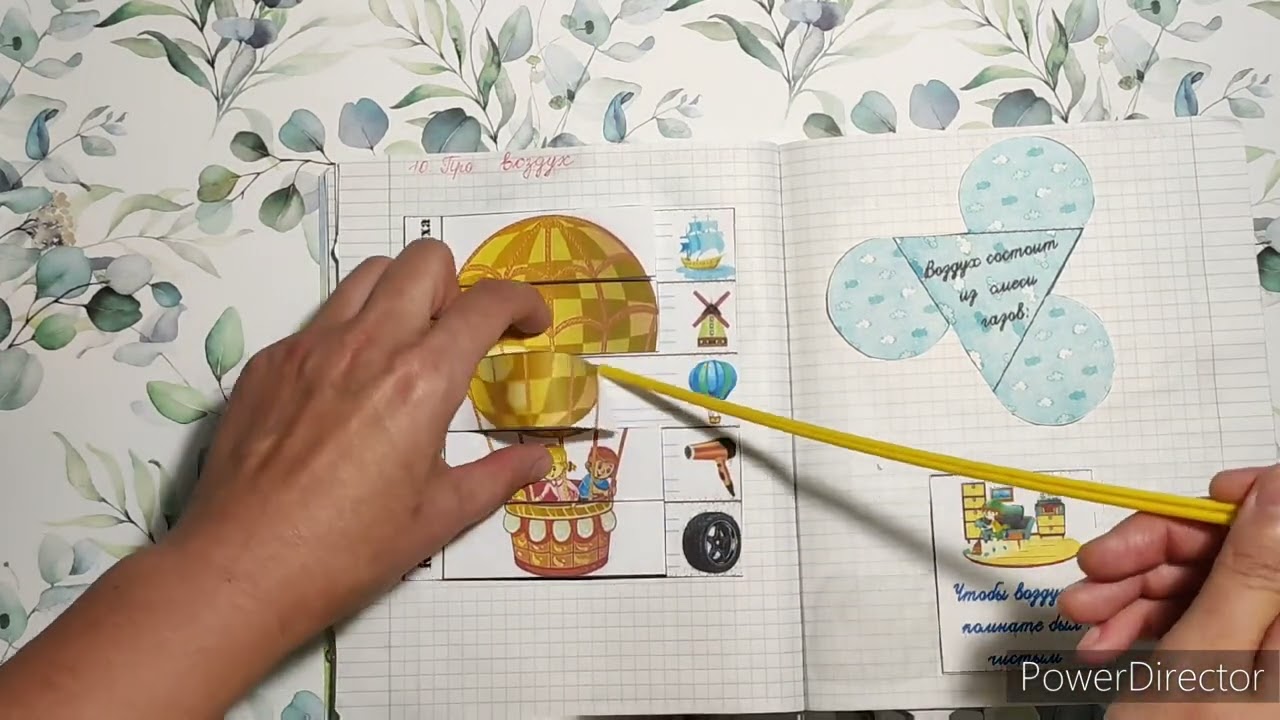 10 Про воздух
Воздух состоит
из смеси
газов:
Чтобы
был
чистым
PowerDirector